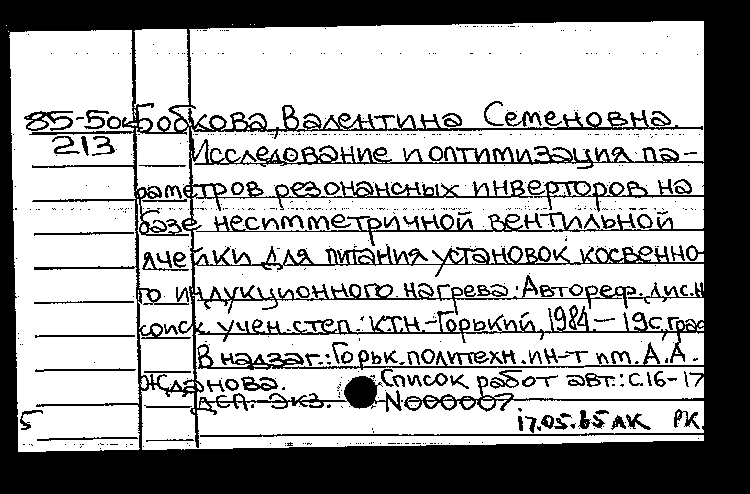 85-5 Бобкова, Валентина Семеновна.
213 Исследование и оптимизация па-
раметров резонансных инверторов на
базе несимметричной вентильной
ячейки для питания установок косвенно-
го индукционного нагрева: Автореф. дис. н
соиск. учен. степ. к.т.н. - Горький, 1984. - 19с, граф
В надзаг.: Горьк. политехн. ин-т им. А.А.
Жданова. Список работ авт.: с.16-17
ДСП. - Экз. N000007
5 17.05.85 ЛК РК.